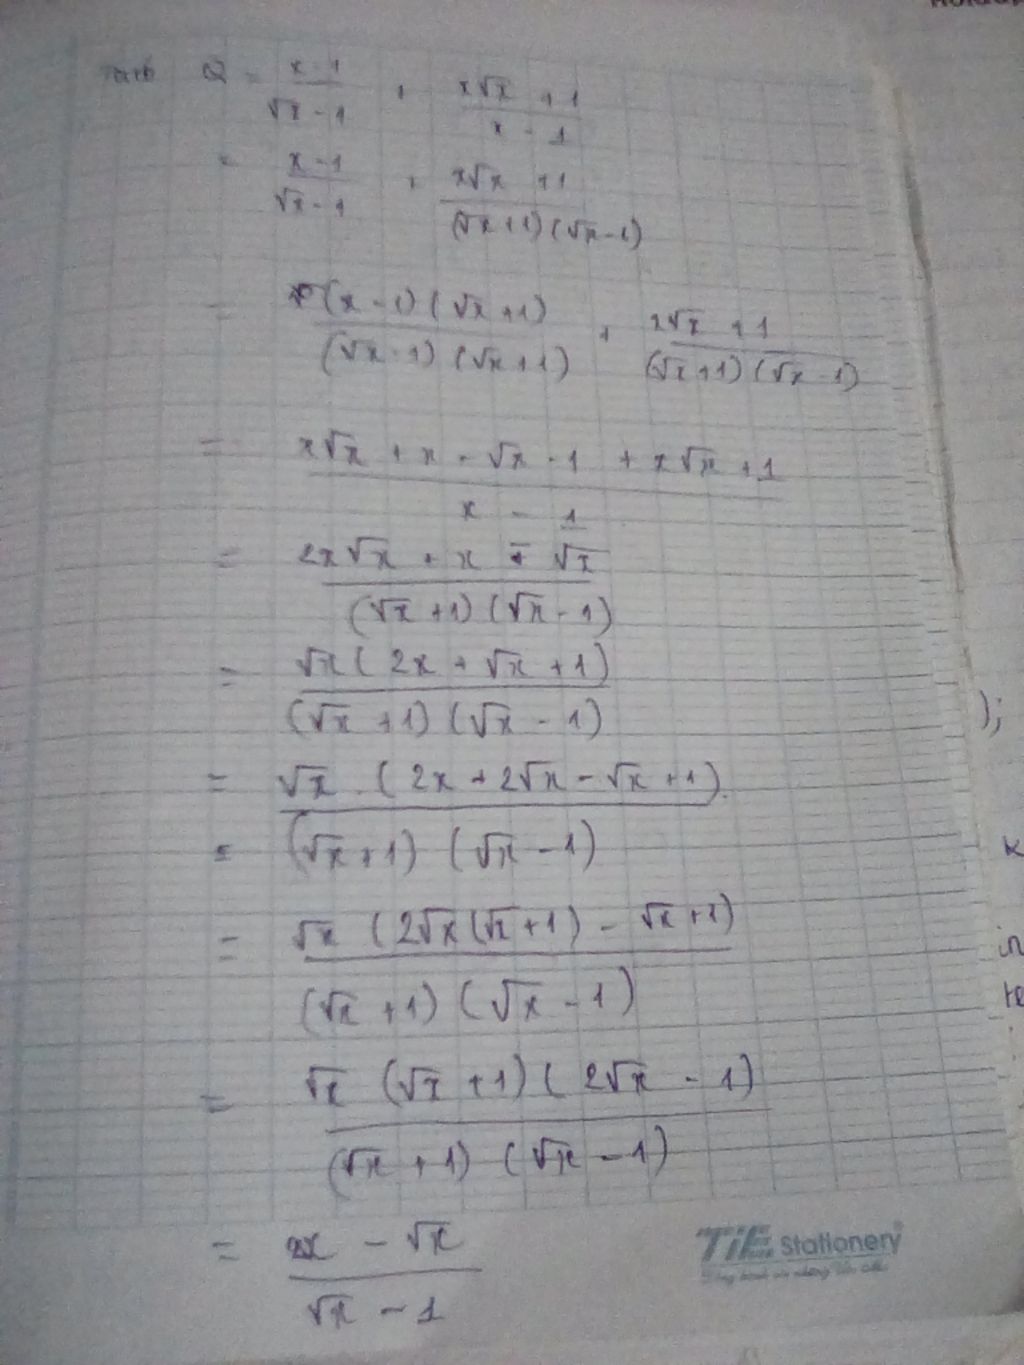 Q = \frac{x-1}{\sqrt{x}-1} + \frac{x\sqrt{x}+1}{x-1}
= \frac{x-1}{\sqrt{x}-1} + \frac{x\sqrt{x}+1}{(\sqrt{x}+1)(\sqrt{x}-1)}
= \frac{(x-1)(\sqrt{x}+1)}{(\sqrt{x}-1)(\sqrt{x}+1)} + \frac{x\sqrt{x}+1}{(\sqrt{x}+1)(\sqrt{x}-1)}
= \frac{x\sqrt{x}+x-\sqrt{x}-1+x\sqrt{x}+1}{x-1}
= \frac{2x\sqrt{x}+x-\sqrt{x}}{(\sqrt{x}+1)(\sqrt{x}-1)}
= \frac{\sqrt{x}(2x+\sqrt{x}+1)}{(\sqrt{x}+1)(\sqrt{x}-1)}
);
= \frac{\sqrt{x}.(2x+2\sqrt{x}-\sqrt{x}+1)}{(\sqrt{x}+1)(\sqrt{x}-1)}
= \frac{\sqrt{x}(2\sqrt{x}(\sqrt{x}+1)-\sqrt{x}+1)}{(\sqrt{x}+1)(\sqrt{x}-1)}
= \frac{\sqrt{x}(\sqrt{x}+1)(2\sqrt{x}-1)}{(\sqrt{x}+1)(\sqrt{x}-1)}
= \frac{2x-\sqrt{x}}{\sqrt{x}-1}
TiE Stationery